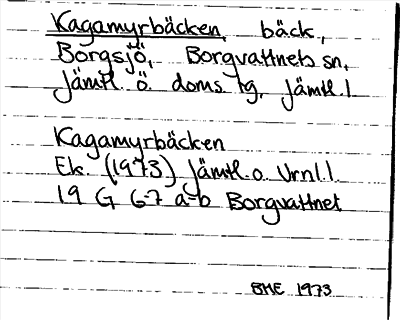 Kagamyrbäcken, bäck,
Borgsjö, Borgvattnets sn,
Jämtl. ö. doms tg, Jämtl. l
Kagamyrbäcken
Ek. (1973) Jämtl. o. Vrnl. l.
19 G 67 a-b Borgvattnet
BHE 1973